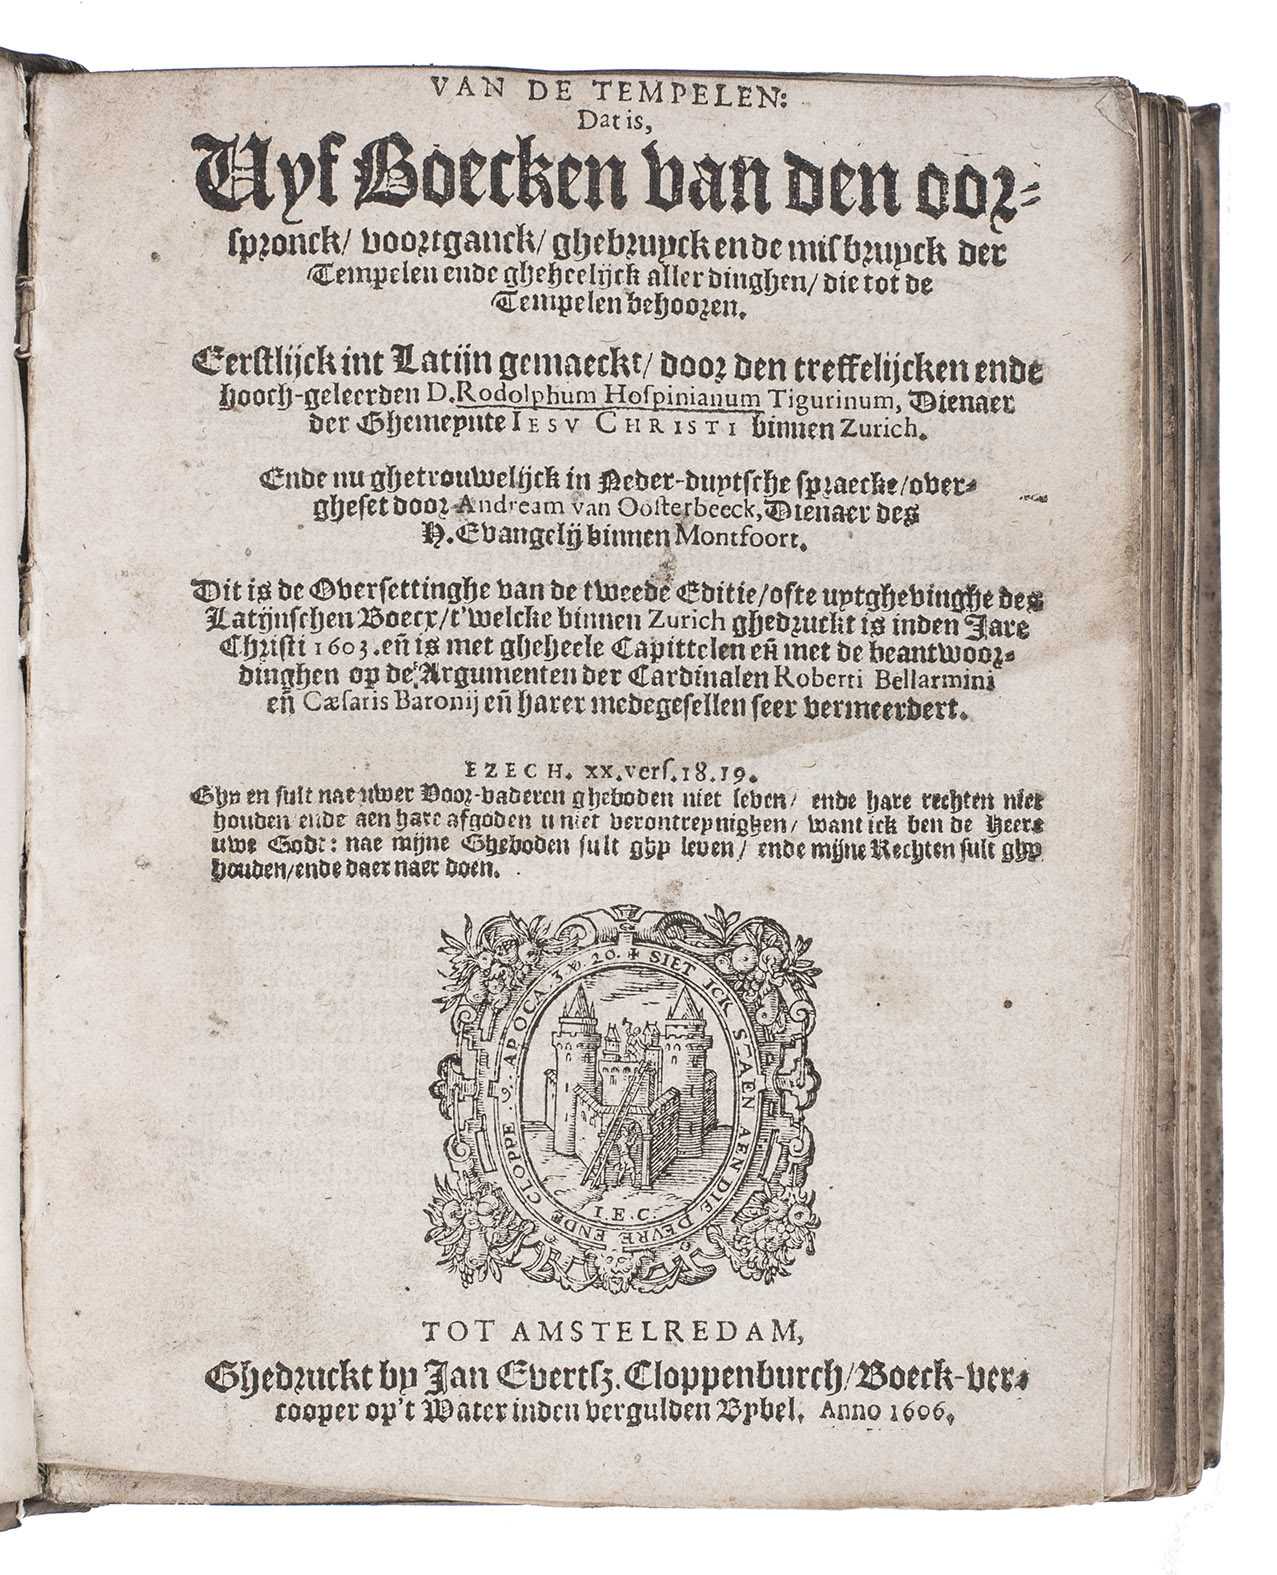 VAN DE TEMPELEN:
Dat is,
Vyf Boecken van den oor-
spronck/ voortganck/ ghebruyck ende misbruyck der
Tempelen ende gheheelijck aller dinghen/ die tot de
Tempelen behooren.
Eerstlijck int Latijn gemaeckt/ door den treffelijcken ende
hooch-geleerden D. Rodolphum Hospinianum Tigurinum, Dienaer
der Ghemeynte IESV CHRISTI binnen Zurich.
Ende nu ghetrouwelijck in Neder-duytsche spraecke/ over-
gheset door Andream van Oosterbeeck, Dienaer des
H. Evangelij binnen Montfoort.
Dit is de Oversettinghe van de tweede Editie/ ofte uytghevinghe des
Latijnschen Boecx/ t'welcke binnen Zurich ghedruckt is inden Jare
Christi 1603. eñ is met gheheele Capittelen eñ met de beantwoor-
dinghen op de Argumenten der Cardinalen Roberti Bellarmini
eñ Cæsaris Baronij eñ harer medegesellen seer vermeerdert.
EZECH. XX. vers. 18. 19.
Ghy en sult nae uwer Voor-vaderen gheboden niet leven/ ende hare rechten niet
houden ende aen hare afgoden u niet verontreynighen/ want ick ben de Heere
uwe Godt: nae mijne Gheboden sult ghy leven/ ende mijne Rechten sult ghy
houden/ ende daer naer doen.
✠ SIET ICK STAEN AEN DIE DEVRE ENDE CLOPPE. 9. APOCA. 3. v. 20.
I.E.C.
TOT AMSTELREDAM,
Ghedruckt by Jan Evertsz. Cloppenburch/ Boeck-ver-
cooper op't Water inden vergulden Bybel. Anno 1606.